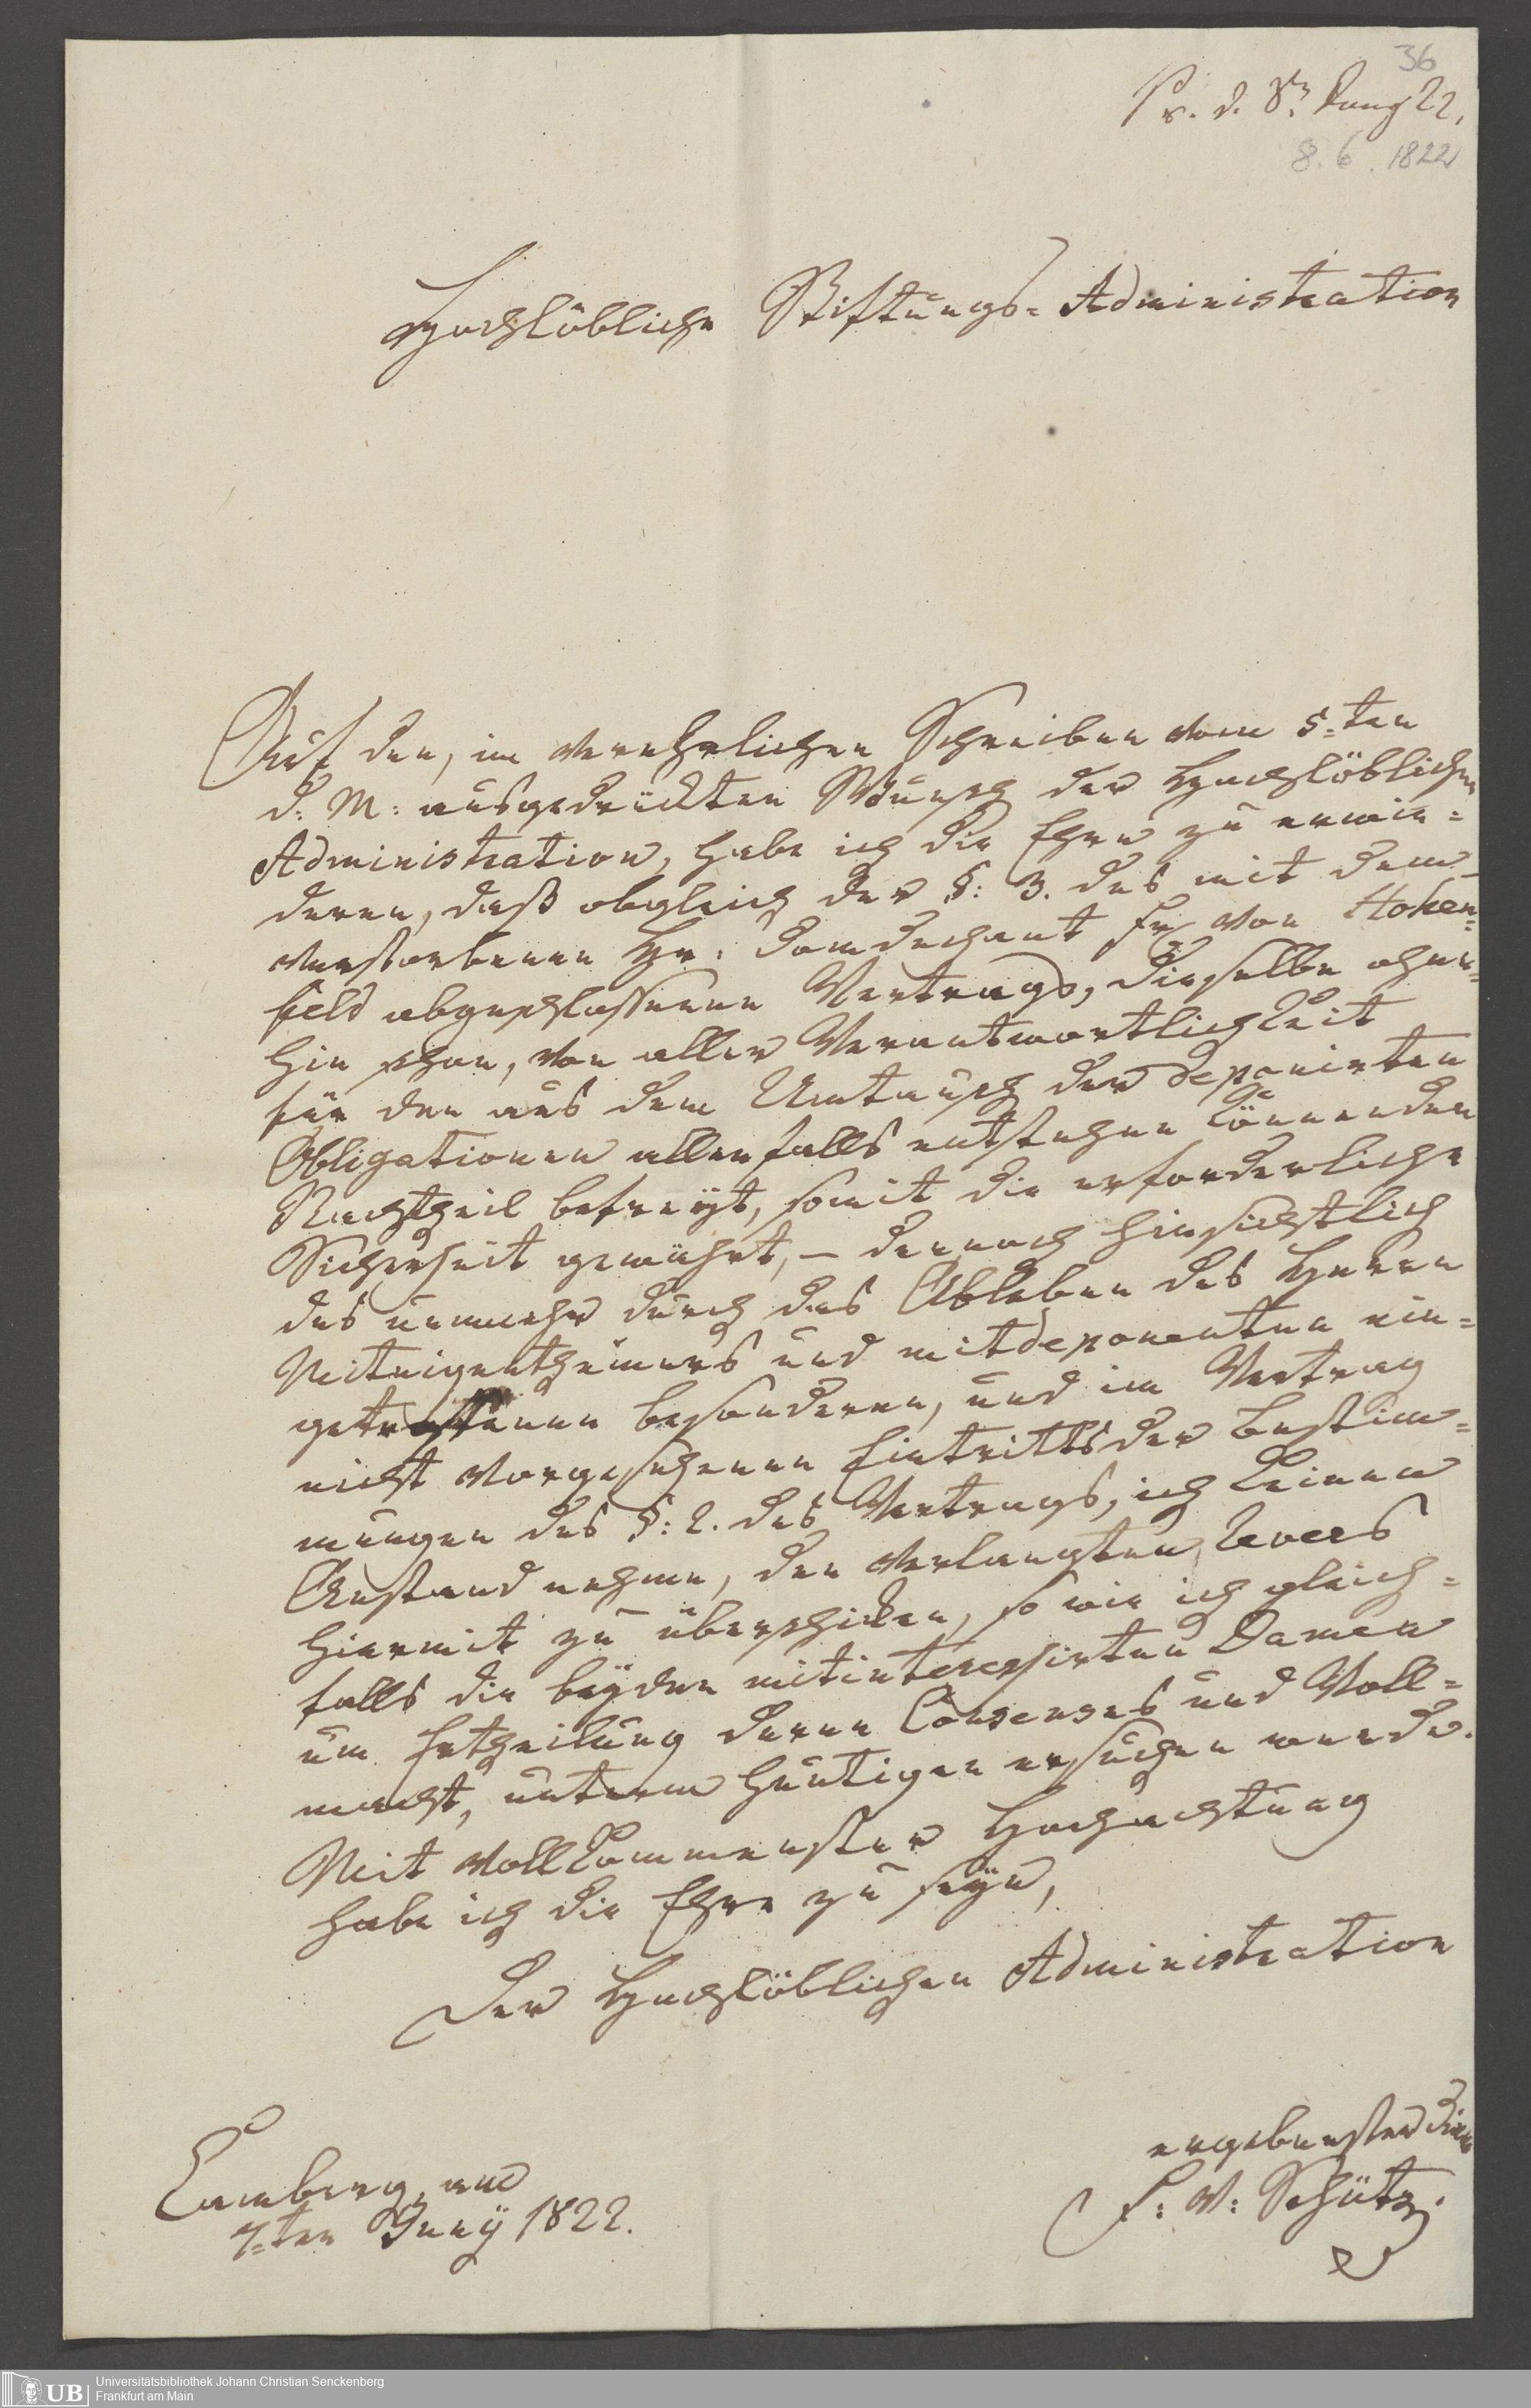 36
Pr. d. 8n Juny 22,
8. 6. 1822
Hochlöbliche Stiftungs-Administration
Auf den, im verehrlichen Schreiben vom 5=ten
d: M: ausgedrückten Wunsch der Hochlöblichen
Administration, habe ich die Ehre zu erwie=
deren, daß obgleich der §: 3. des mit dem
verstorbenen Hr: Domdechant Fr von Hohen=
feld abgeschlossenen Vertrags, dieselbe ohne=
hin schon, von aller Verantwortlichkeit
für den aus dem Umtausch der deponirten
Obligationen allenfalls entstehen könnenden
Nachtheil befreÿt, somit die erforderliche
Sicherheit gewährt, – dennoch hinsichtlich
des nunmehr durch das Ableben des Herrn
Miteigenthümers und mitdeponenten ein=
getroffenen besonderen, und im Vertrag
nicht vorgesehenen Eintritts der Bestim=
mungen des §: 2. des Vertrags, ich keinen
Anstand nehme, den verlangten Revers
hiermit zu überschicken, so wie ich gleich=
falls die beÿden mitinteressirten Damen
um Ertheilung deren Consenses und Voll=
macht, unterm heutigen ersuchen werde.
Mit vollkommenster Hochachtung
habe ich die Ehre zu seÿn,
Der Hochlöblichen Administration
ergebenster
F: v: Schütz.
Camberg, am
7=ten Junÿ 1822.
UB
Universitätsbibliothek Johann Christian Senckenberg
Frankfurt am Main